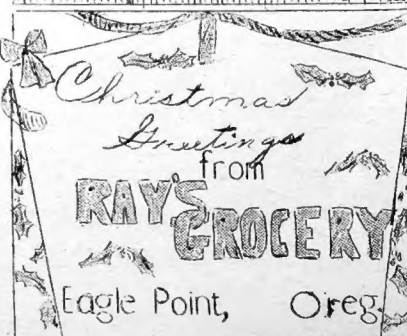 Christmas
Greetings
from
RAY'S
GROCERY
Eagle Point, Oreg.